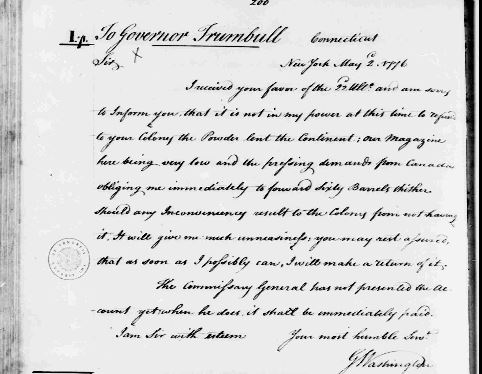 200
To Governor Trumbull Connecticut
Sir, New York May 2d. 1776
I received your favor of the 22 Ulto. and am sorry
to Inform you, that it is not in my power at this time to
to your Colony the Powder lent the Continent; our Magazine
here being very low and the pressing demands from Canada
obliging me immediately to forward Sixty Barrels thither
should any Inconveniency result to the Colony from not having
it, It will give me much uneasiness; you may rest assured,
that as soon as I possibly can, I will make a return of it,
The Commissary General has not presented the Ac-
count yet; when he does, it shall be immediately paid.
I am Sir with esteem Your most humble Servt.
G Washington